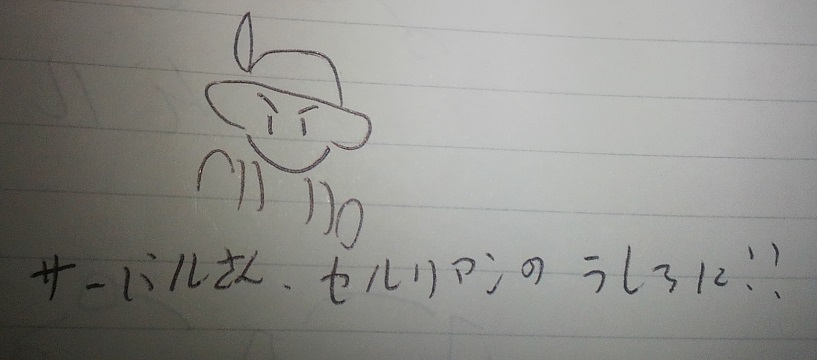 サーバルさん、セルリアンのうしろに!!